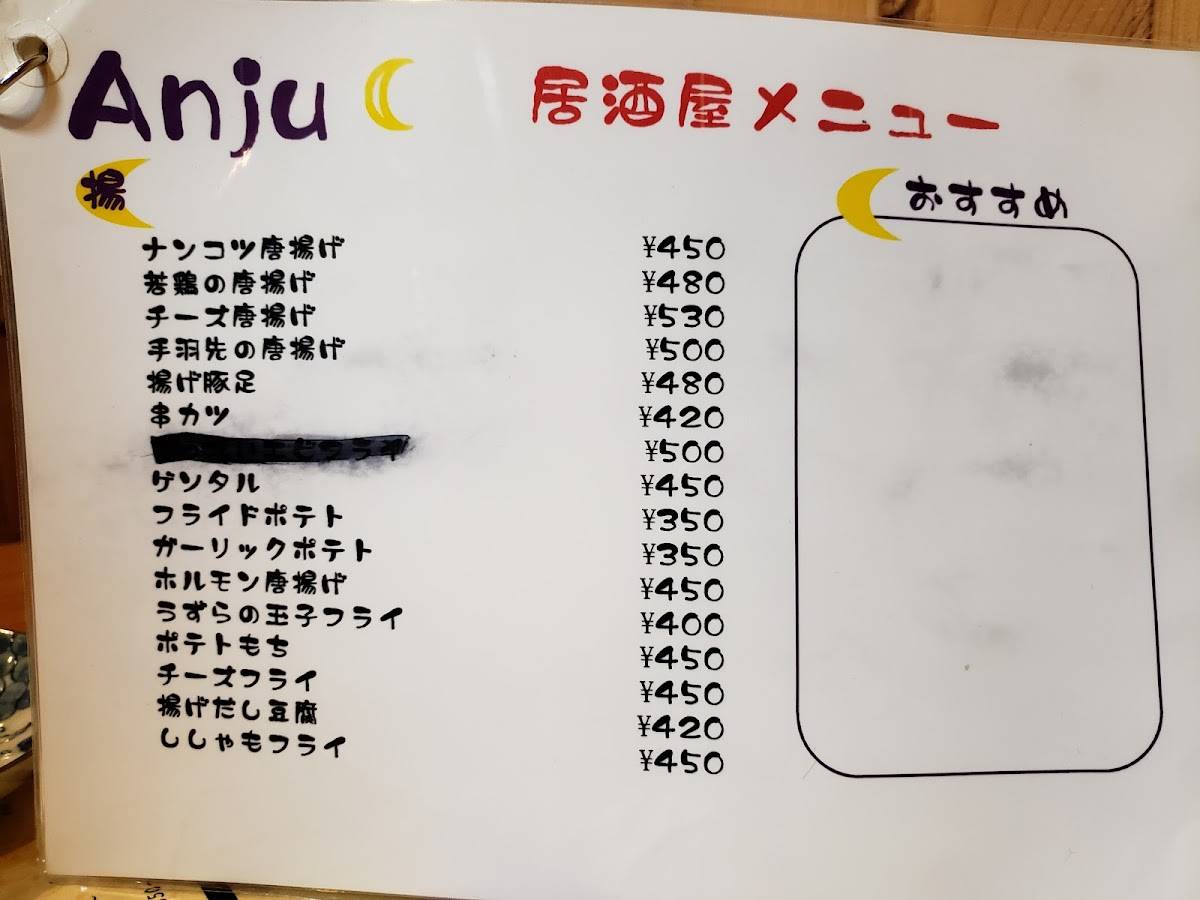 Anju
居酒屋メニュー
揚
おすすめ
ナンコツ唐揚げ ¥450
若鶏の唐揚げ ¥480
チーズ唐揚げ ¥530
手羽先の唐揚げ ¥500
揚げ豚足 ¥480
串カツ ¥420
¥500
ゲソタル ¥450
フライドポテト ¥350
ガーリックポテト ¥350
ホルモン唐揚げ ¥450
うずらの玉子フライ ¥400
ポテトもち ¥450
チーズフライ ¥450
揚げだし豆腐 ¥420
ししゃもフライ ¥450